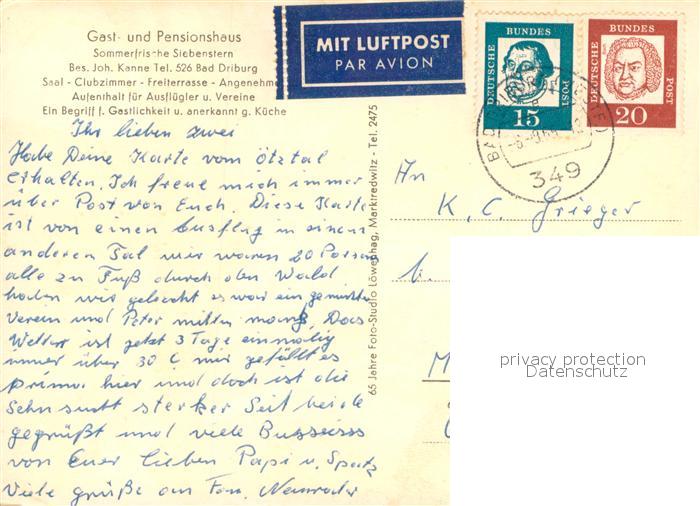 Gast- und Pensionshaus
Sommerfrische Siebenstern
Bes. Joh. Kanne Tel. 526 Bad Driburg
Saal - Clubzimmer - Freiterrasse - Angenehme
Aufenthalt für Ausflügler u. Vereine
Ein Begriff f. Gastlichkeit u. anerkannt g. Küche
MIT LUFTPOST
PAR AVION
DEUTSCHE BUNDES POST
15
DEUTSCHE BUNDES POST
20
BAD
349
Ihr lieben zwei
Habe Deine Karte vom Ötztal
erhalten. Ich freue mich immer
über Post von Euch. Diese Karte
ist von einen Ausflug in einen
anderen Tal wir waren 20 Person
alle zu Fuß durch den Wald
haben wir gelacht es war ein gemischter
Verein und Peter mitten mang. Das
Wetter ist jetzt 3 Tage einmalig
immer über 30 C mir gefällt es
prima hier und doch ist die
Sehnsucht starker Seit beide
gegrüßt und viele Bussis
von Euer lieben Papi u. Spatz
Viele grüße an Fam.
An
K. C. Grieger
65 Jahre Foto-Studio Löwenhag, Marktredwitz - Tel. 2475
privacy protection
Datenschutz